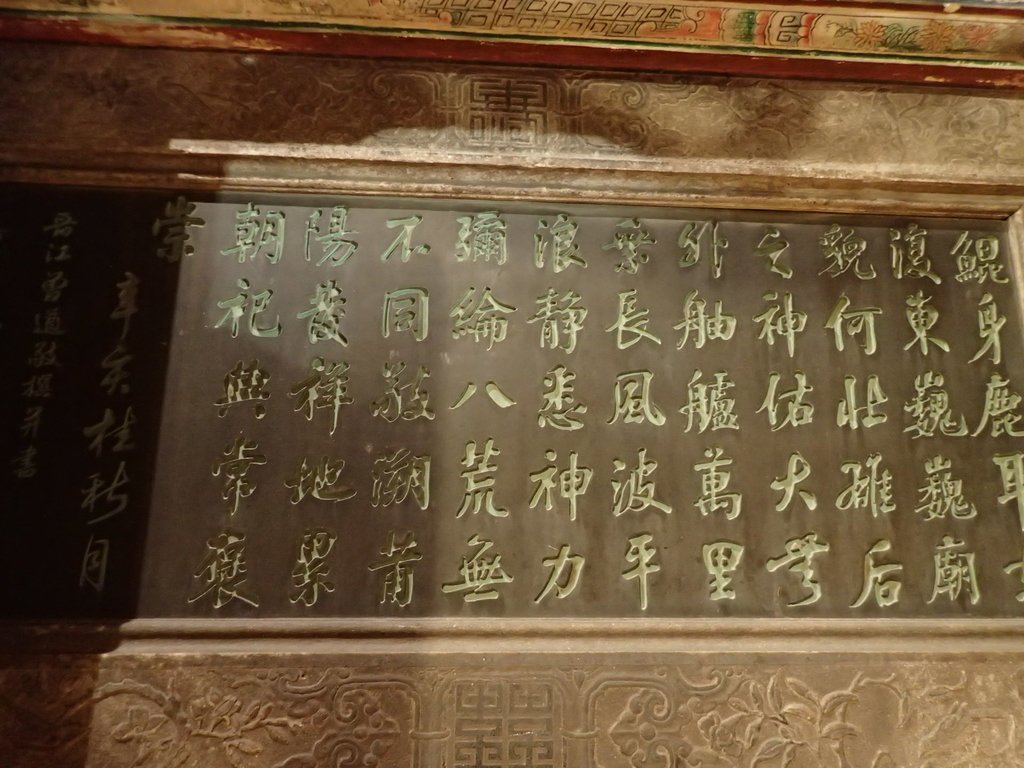 鯤身鹿耳
復東巍巍廟
貌何壯雄后
之神佑大無
外舳艫萬里
乘長風波平
浪静悉神力
彌綸八荒無
不同敬溯莆
陽發祥地累
朝祀典常褒
崇
辛亥桂秋月
晉江曾道敬撰并書